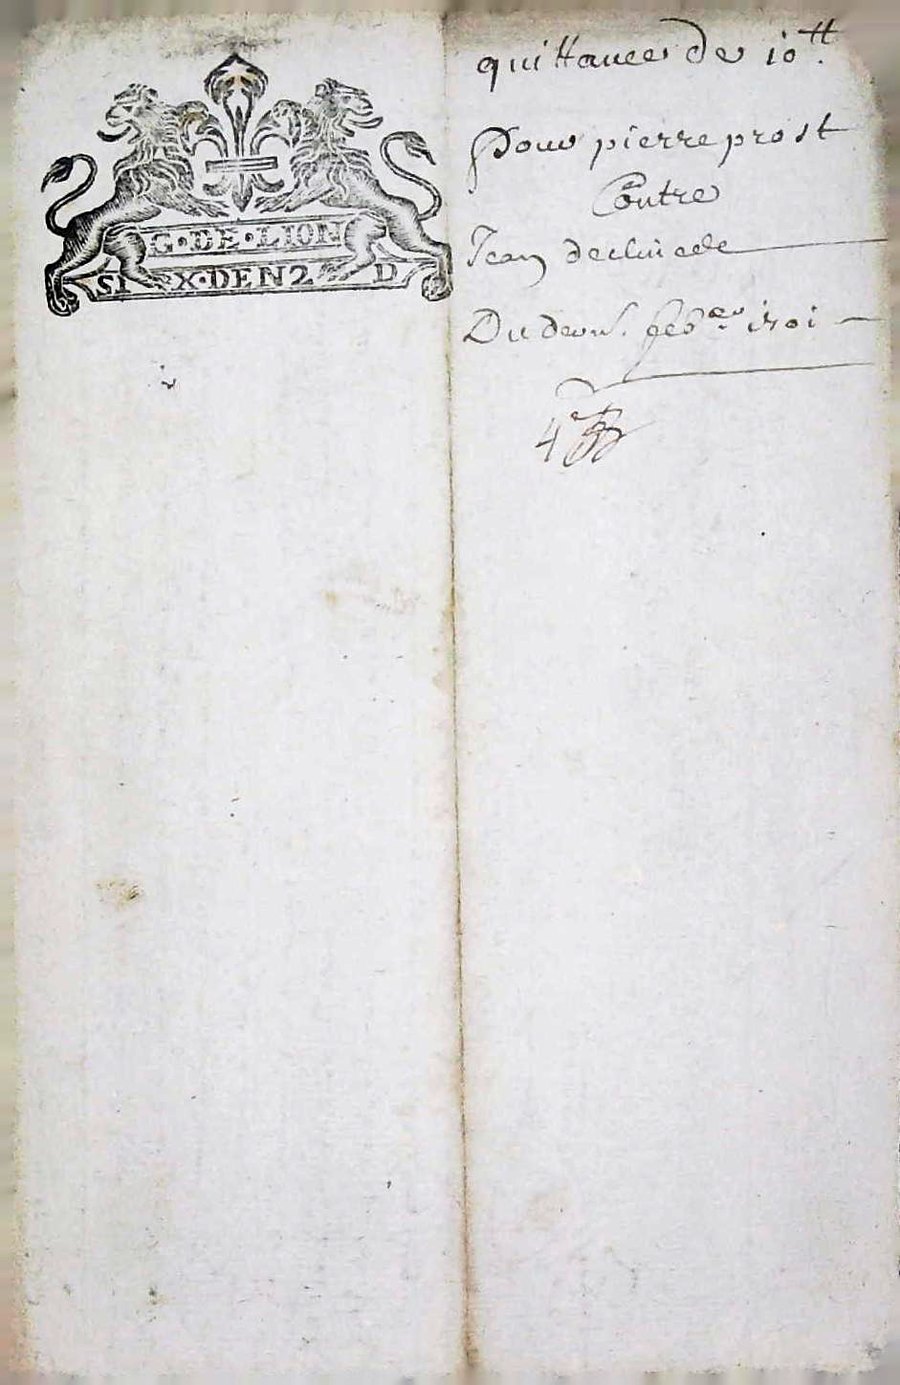 G·DE·LION
SIX·DEN 2 D
quittance de 10tt.
Pour pierre prost
Contre
Jean
Du feb.er 1701
4e